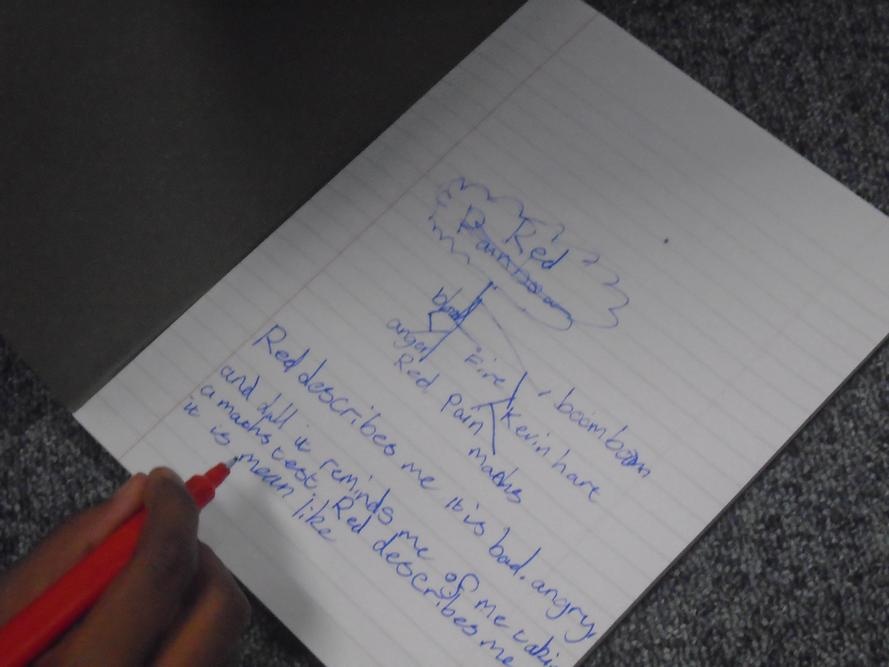 Red
Rainbow
blood
anger
Fire
Red Pain
boom boom
Kevin hart
maths
Red describes me it is bad. angry
and dull it reminds me of me taki
a maths test. Red describes me
it is mean like